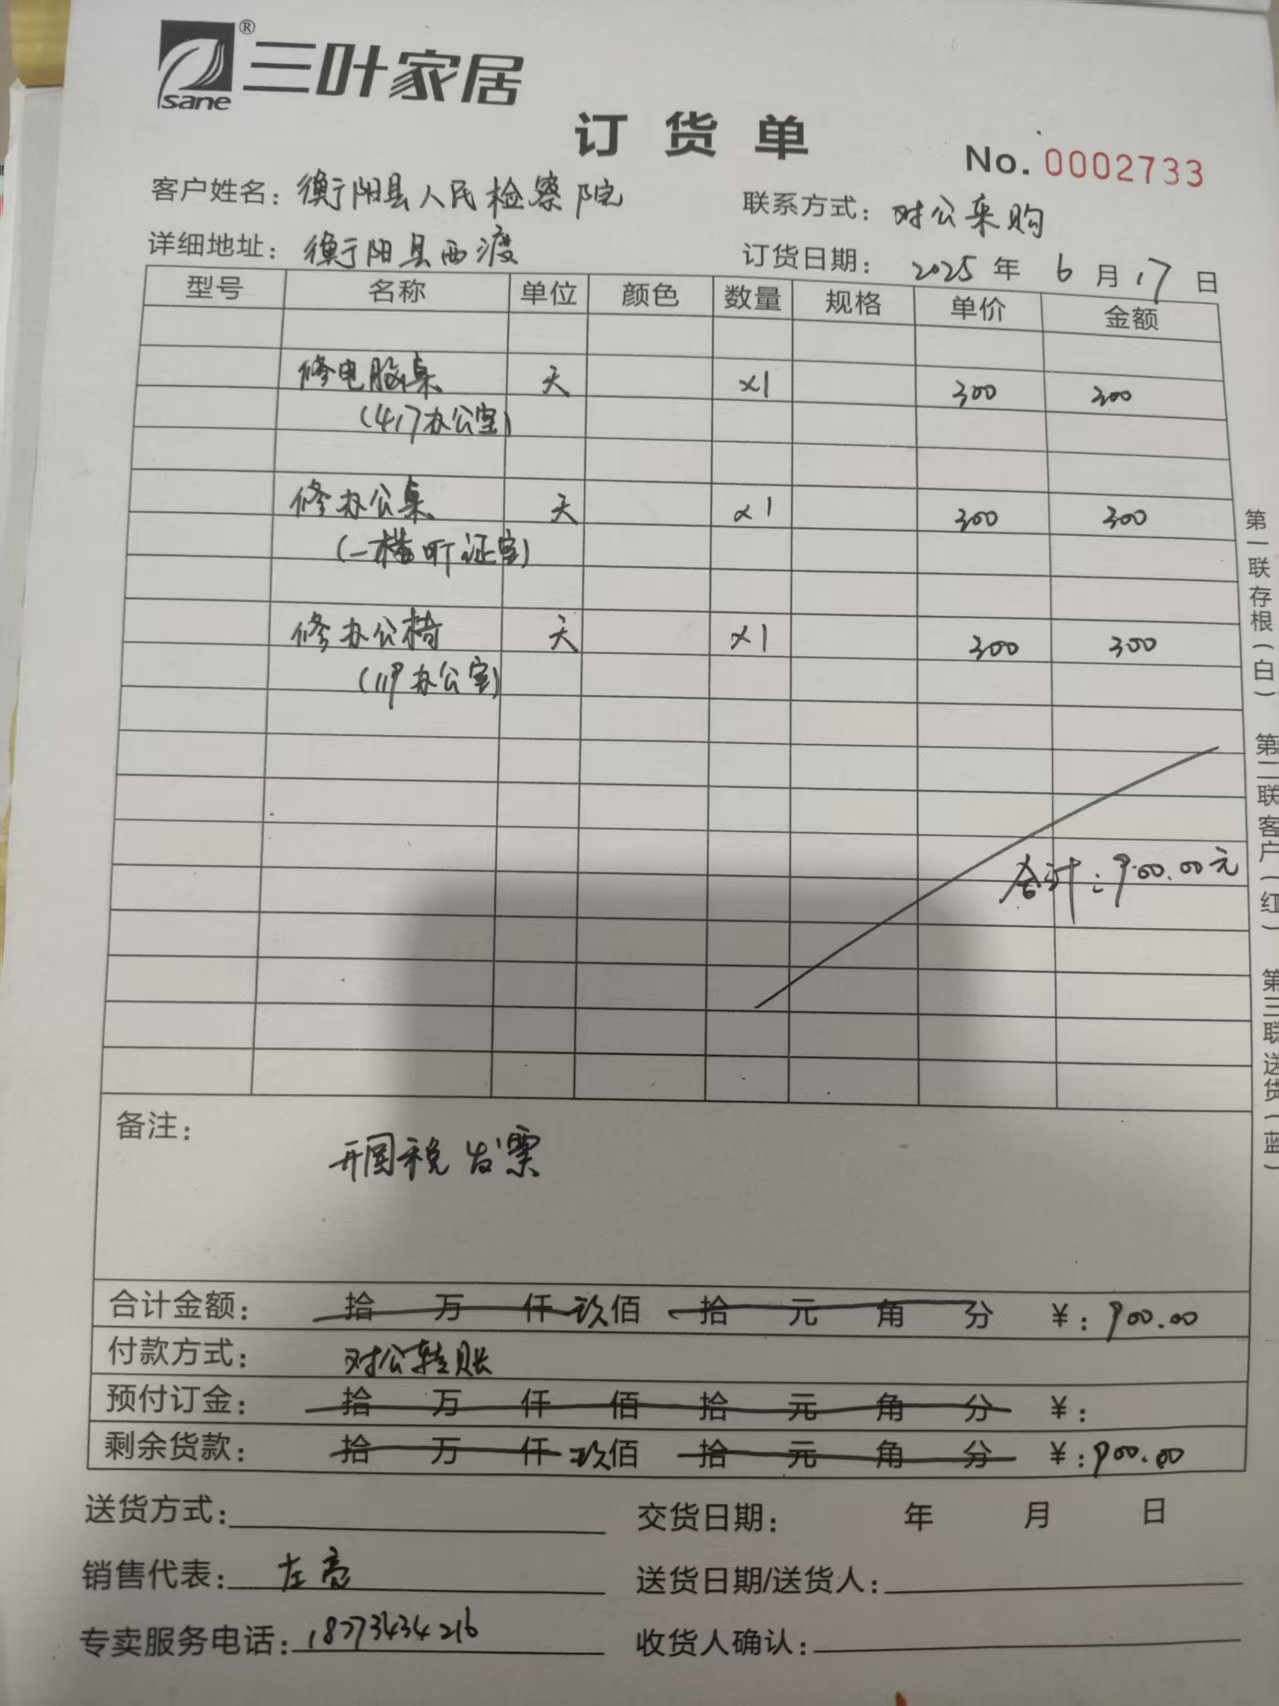 sane® 三叶家居
订货单
No. 0002733
客户姓名：衡阳县人民检察院 联系方式：对公采购
详细地址：衡阳县西渡 订货日期：2025年6月17日
型号 名称 单位 颜色 数量 规格 单价 金额
修电脑桌 天 x1 300 300
(417办公室)
修办公桌 天 x1 300 300
(一楼听证室)
修办公椅 天 x1 300 300
(119办公室)
合计：900.00元
备注：
开国税发票
合计金额： 拾 万 仟 玖佰 拾 元 角 分 ￥：900.00
付款方式： 对公转账
预付订金： 拾 万 仟 佰 拾 元 角 分 ￥：
剩余货款： 拾 万 仟 玖佰 拾 元 角 分 ￥：900.00
送货方式： 交货日期： 年 月 日
销售代表：左亮 送货日期/送货人：
专卖服务电话：18273434216 收货人确认：
第一联存根(白) 第二联客户(红) 第三联送货(蓝)